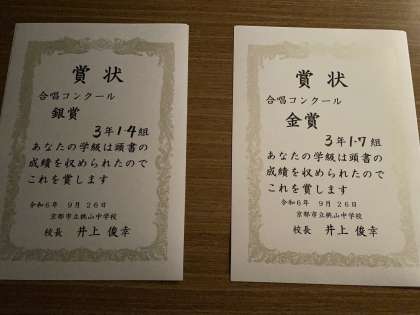 賞状
合唱コンクール
銀賞
3年1・4組
あなたの学級は頭書の
成績を収められたので
これを賞します
令和6年 9月26日
京都市立桃山中学校
校長 井上 俊幸
賞状
合唱コンクール
金賞
3年1・7組
あなたの学級は頭書の
成績を収められたので
これを賞します
令和6年 9月26日
京都市立桃山中学校
校長 井上 俊幸